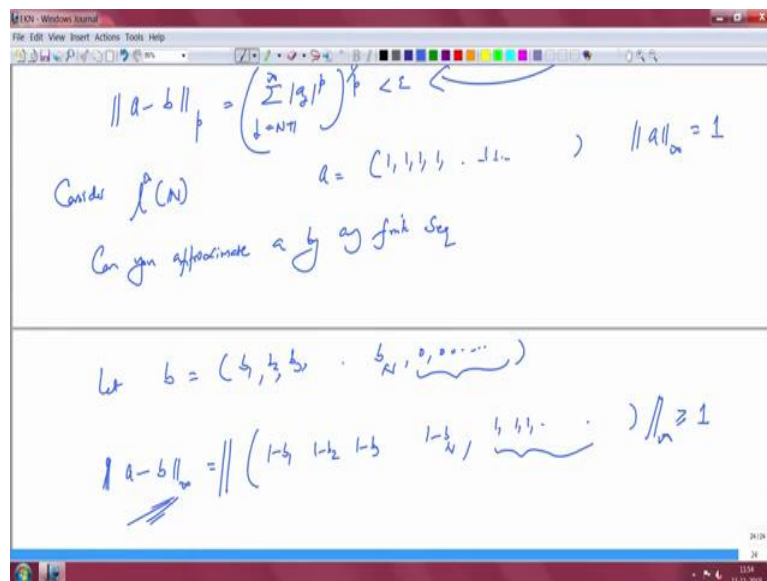 EKN - Windows Journal
File Edit View Insert Actions Tools Help
‖a-b‖_p = (∑_{j=N+1}^∞ |a_j|^p)^{1/p} < ε
Consider l^∞(N) a = (1,1,1,1, . 1 1.. ) ‖a‖_∞ = 1
Can you approximate a by any finite seq
Let b = (b_1, b_2, b_3, . b_N, 0, 0 0 ......)
‖a-b‖_∞ = ‖( 1-b_1 1-b_2 1-b_3 1-b_N, 1, 1, 1, . . )‖_∞ ≥ 1
24/24
24
11:54